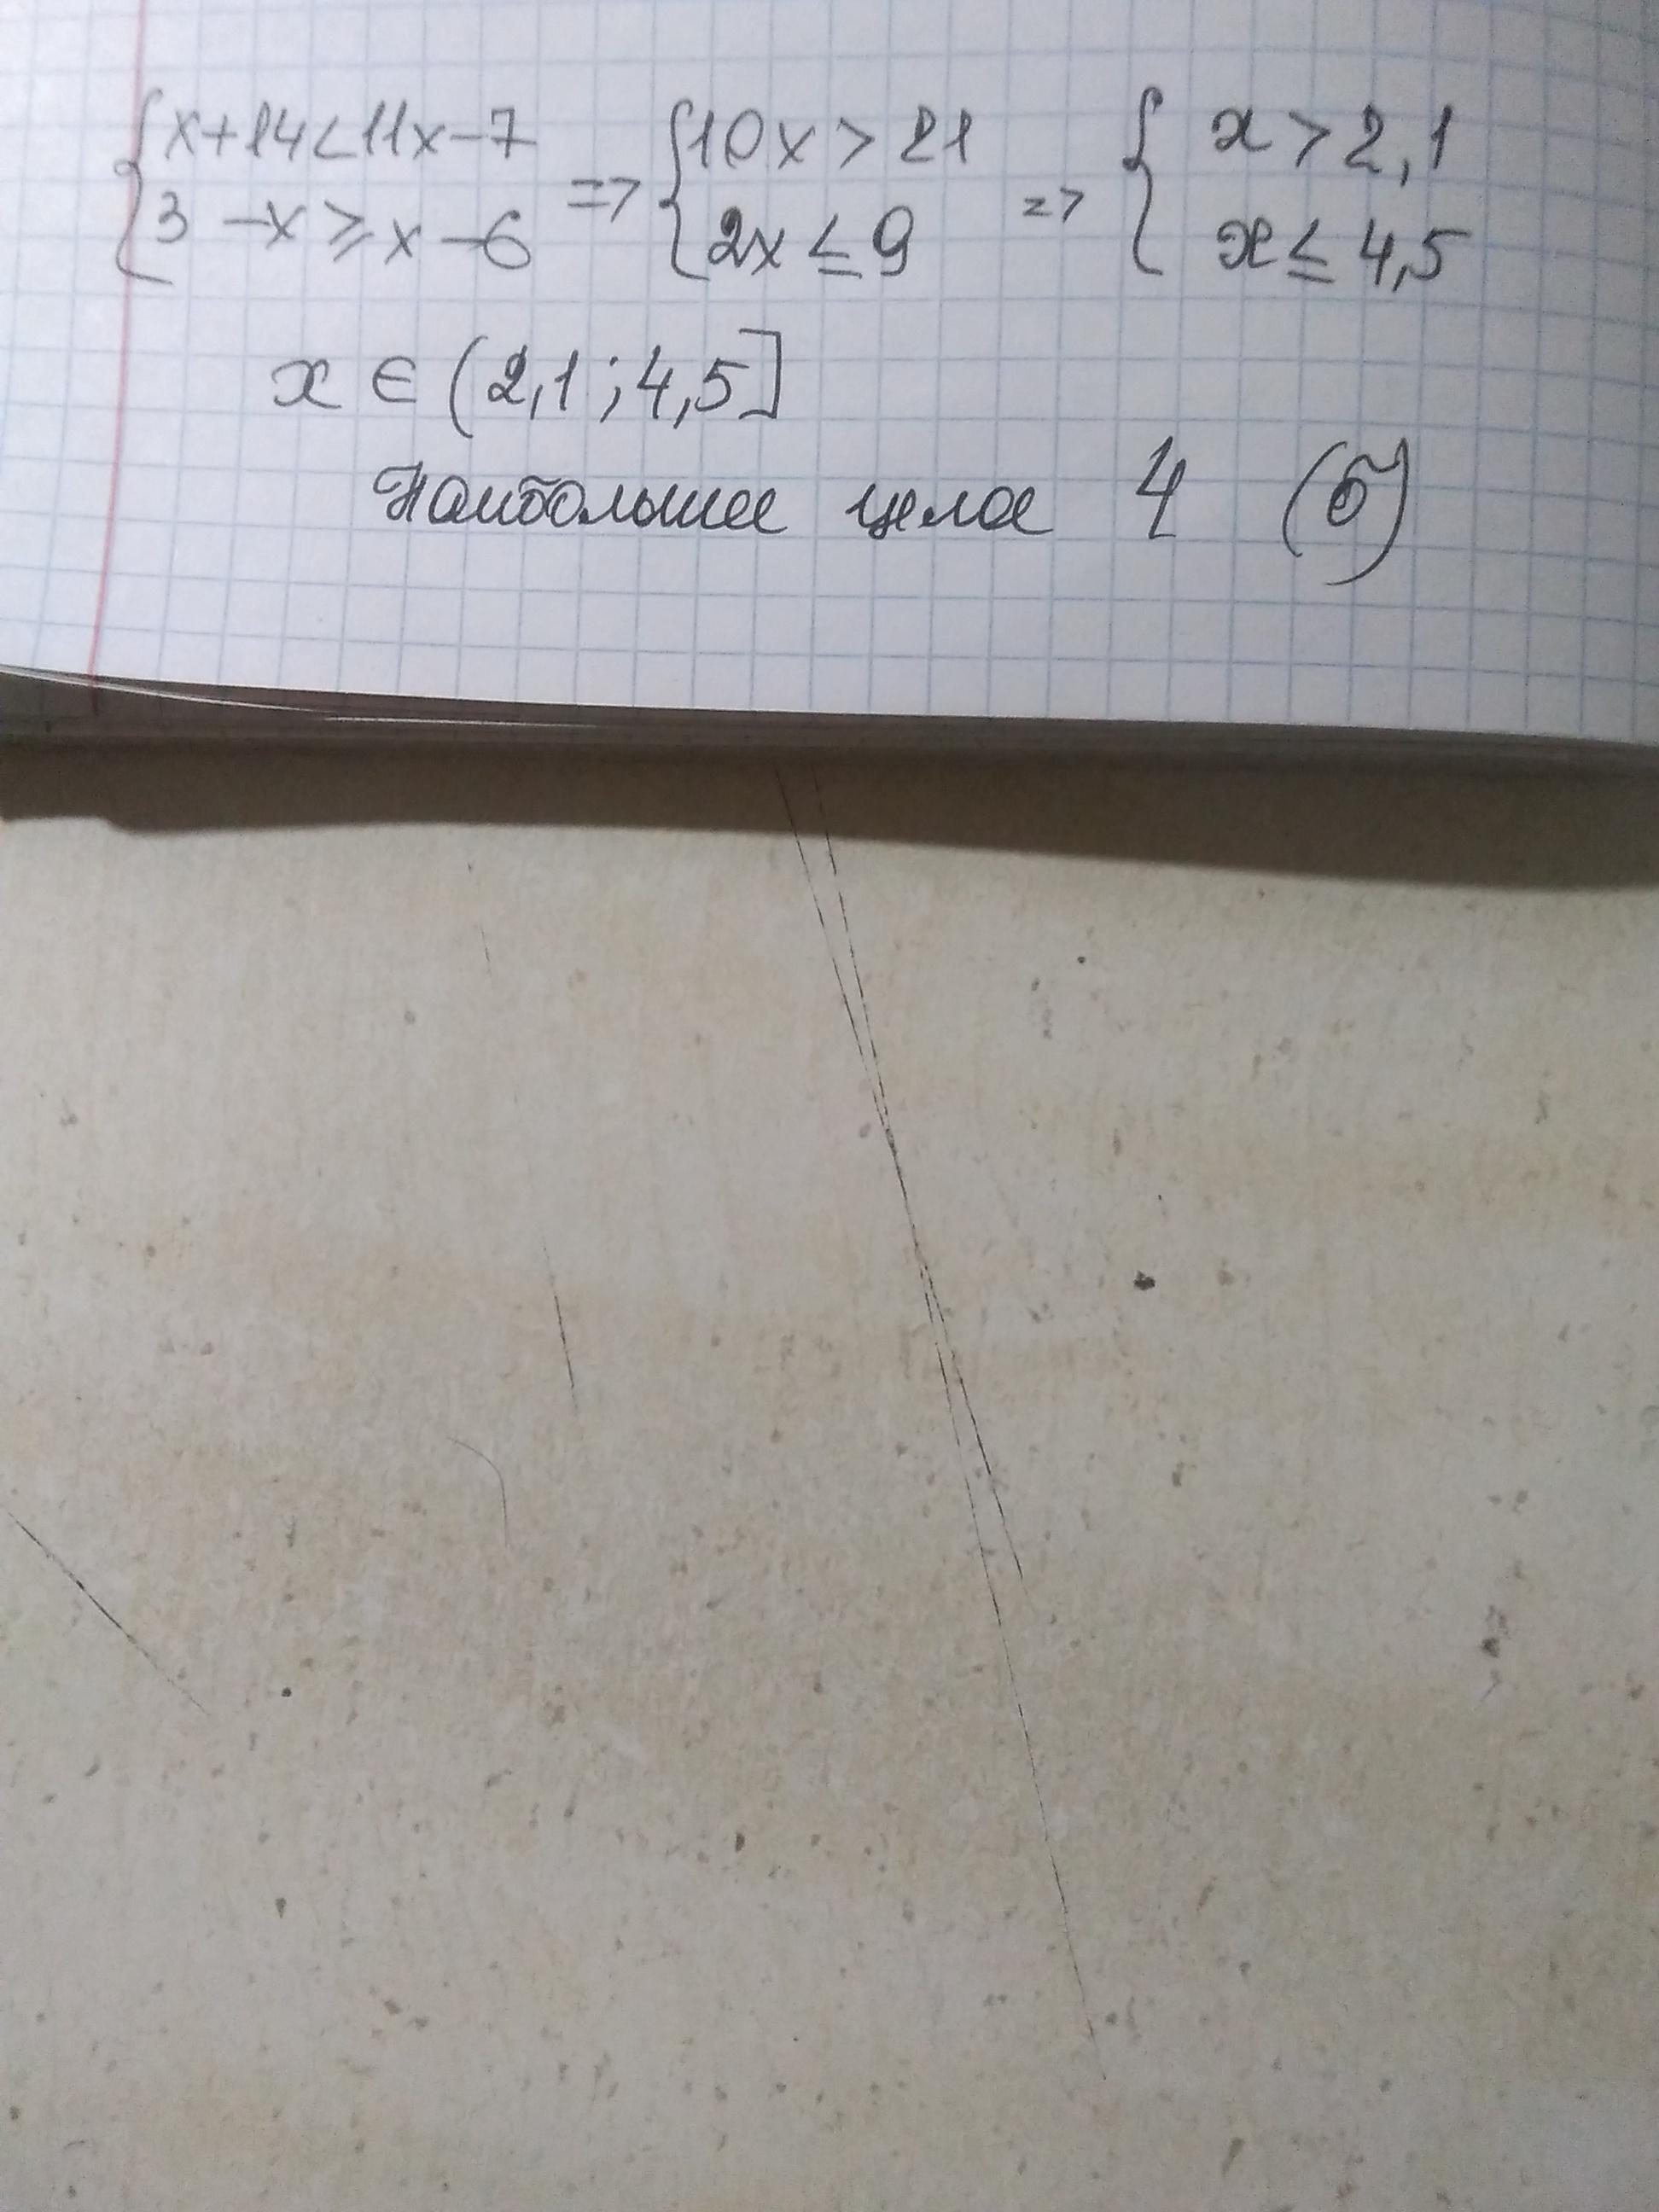 {x+14<11x-7 => {10x>21 => {x>2,1
{3-x⩾x-6 {2x≤9 {x≤4,5
x∈(2,1;4,5]
Наибольшее целое 4 (б)